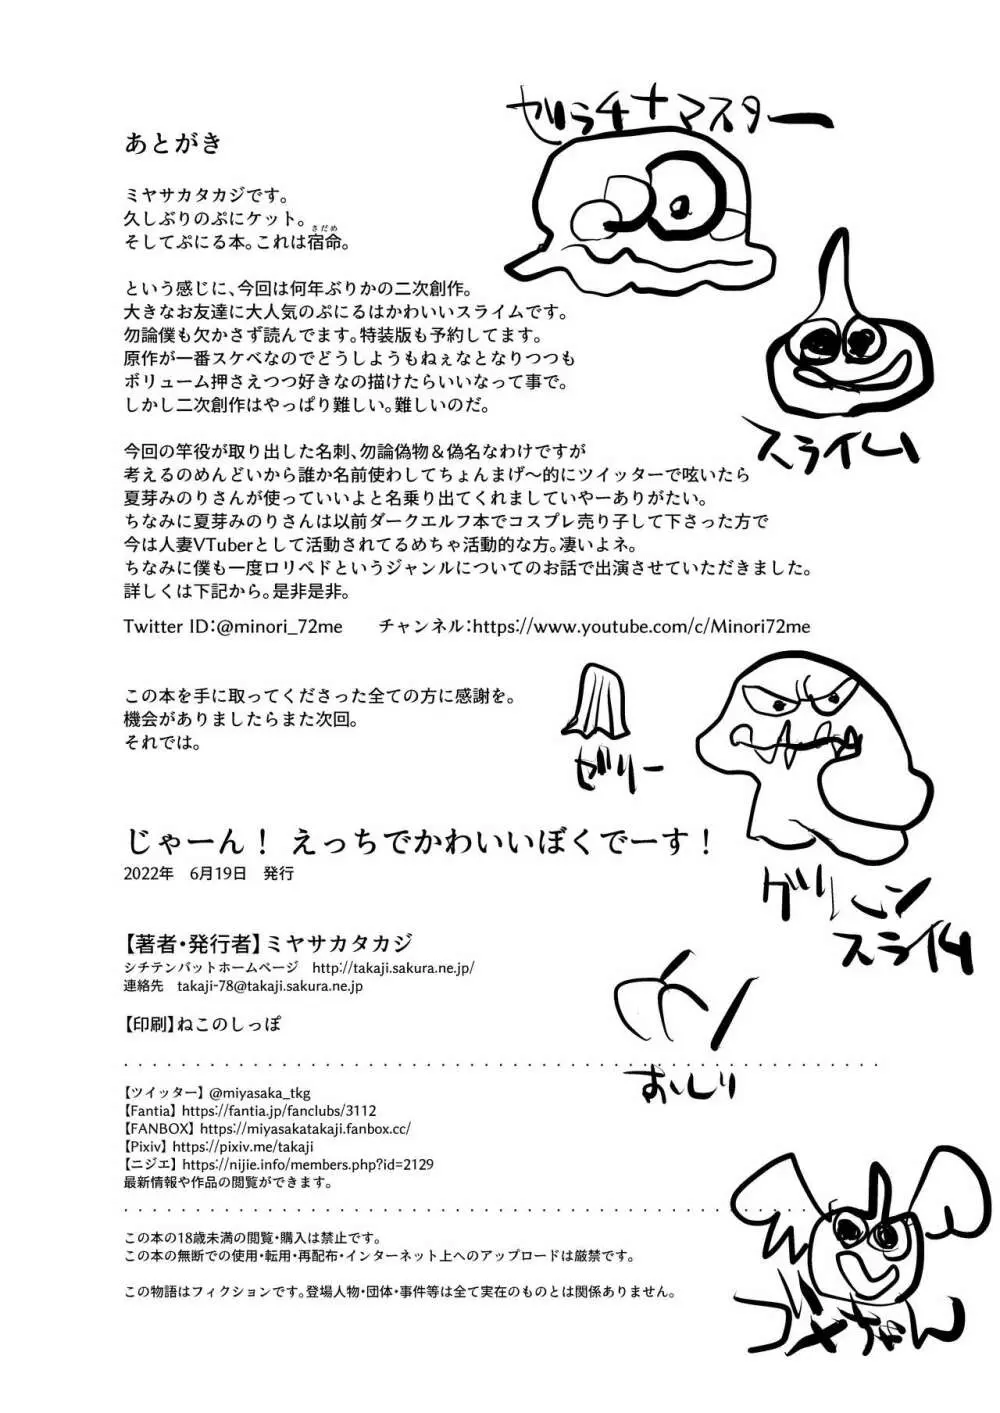 ゼラチナマスター
あとがき
ミヤサカタカジです。
久しぶりのぷにケット。
さだめ
そしてぷにる本。これは宿命。
という感じに、今回は何年ぶりかの二次創作。
大きなお友達に大人気のぷにるはかわいいスライムです。
勿論僕も欠かさず読んでます。特装版も予約してます。
原作が一番スケベなのでどうしようもねぇなとなりつつも
ボリューム押さえつつ好きなの描けたらいいなって事で。
しかし二次創作はやっぱり難しい。難しいのだ。
スライム
今回の竿役が取り出した名刺、勿論偽物＆偽名なわけですが
考えるのめんどいから誰か名前使わしてちょんまげ〜的にツイッターで呟いたら
夏芽みのりさんが使っていいよと名乗り出てくれましていやーありがたい。
ちなみに夏芽みのりさんは以前ダークエルフ本でコスプレ売り子して下さった方で
今は人妻VTuberとして活動されてるめちゃ活動的な方。凄いよネ。
ちなみに僕も一度ロリペドというジャンルについてのお話で出演させていただきました。
詳しくは下記から。是非是非。
Twitter ID：@minori_72me　　チャンネル：https://www.youtube.com/c/Minori72me
この本を手に取ってくださった全ての方に感謝を。
機会がありましたらまた次回。
それでは。
ゼリー
じゃーん！ えっちでかわいいぼくでーす！
2022年　6月19日　発行
グリーン
スライム
【著者・発行者】ミヤサカタカジ
シチテンバットホームページ　http://takaji.sakura.ne.jp/
連絡先　takaji-78@takaji.sakura.ne.jp
【印刷】ねこのしっぽ
おしり
【ツイッター】 @miyasaka_tkg
【Fantia】 https://fantia.jp/fanclubs/3112
【FANBOX】 https://miyasakatakaji.fanbox.cc/
【Pixiv】 https://pixiv.me/takaji
【ニジエ】 https://nijie.info/members.php?id=2129
最新情報や作品の閲覧ができます。
この本の18歳未満の閲覧・購入は禁止です。
この本の無断での使用・転用・再配布・インターネット上へのアップロードは厳禁です。
この物語はフィクションです。登場人物・団体・事件等は全て実在のものとは関係ありません。
ゴメちゃん